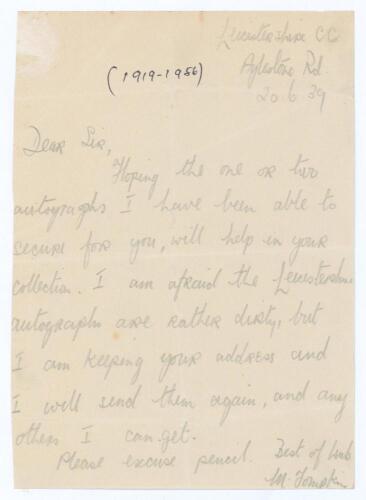 Leicestershire CC
Aylestone Rd.
(1919-1956)
20.6.39
Dear Sir,
Hoping the one or two
autographs I have been able to
secure for you, will help in your
collection. I am afraid the Leicestershire
autographs are rather dirty, but
I am keeping your address and
I will send them again, and any
others I can get.
Please excuse pencil. Best of luck
M. Tompkin